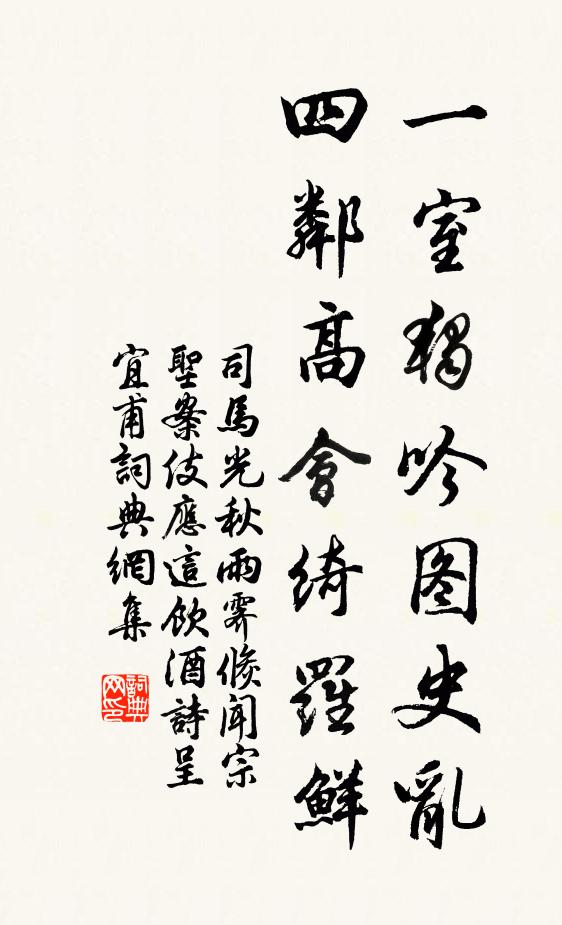 一室獨吟图史亂
四鄰高會綺羅鮮
司馬光秋雨霽倏聞宗
聖案伎應這飲酒詩呈
宜甫詞典網集
詞典网印